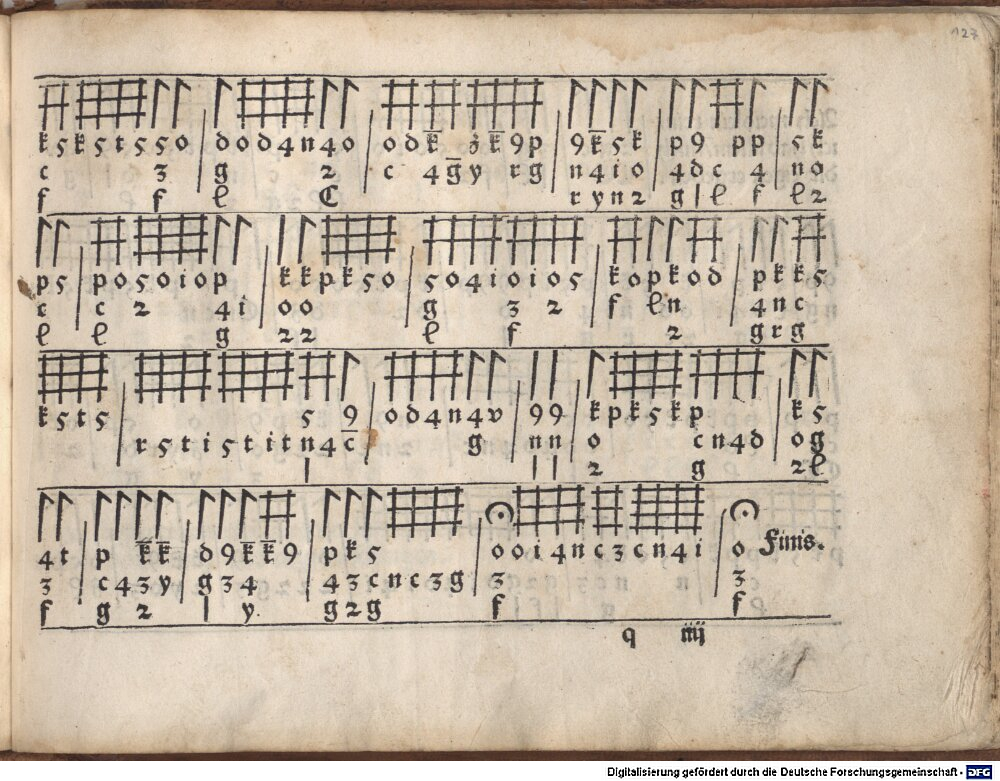 127
k 5 k 5 t 5 5 o d o d 4 n 4 o o d k̅ k̅ 9 p 9 k̅ 5 k p 9 p p 5 k
c 3 g 2 c 4 g̅ y r g n 4 i o 4 d c 4 n o
f f l C r y n 2 g l f l 2
p 5 p o 5 o i o p k k p k 5 o 5 o 4 i o i o 5 k o p k o d p k k 5
c c 2 4 i o o g 3 2 f l n 4 n c
l l g 2 2 l f 2 g r g
k 5 t 5 5 9 o d 4 n 4 v 9 9 k p k 5 k p k 5
r 5 t i 5 t i t n 4 c̅ g n n o c n 4 d o g
2 g 2 l
4 t p k̅ k̅ d 9 k̅ k̅ 9 p k 5 o o i 4 n c 3 c n 4 i o Finis.
3 c 4 3 y g 3 4 4 3 c n c 3 g 3 3
f g 2 y. g 2 g f f
q iiij
Digitalisierung gefördert durch die Deutsche Forschungsgemeinschaft - DFG